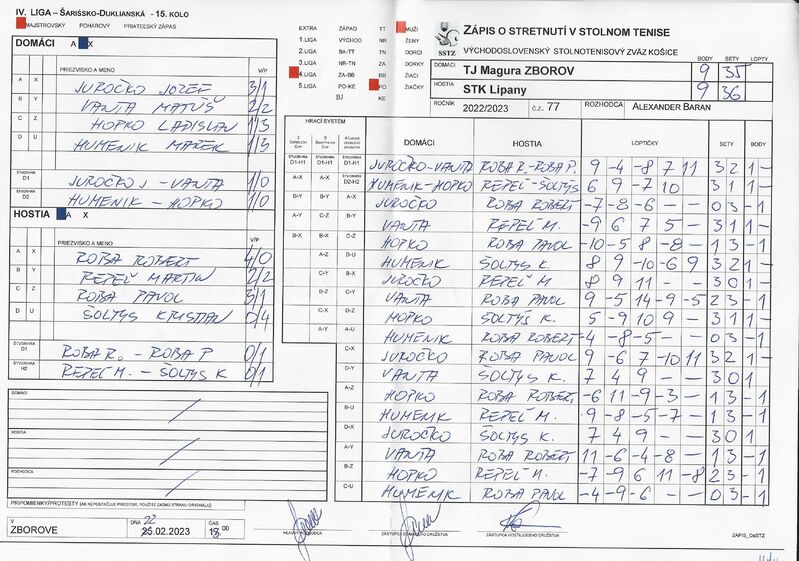 IV. LIGA – ŠARIŠSKO-DUKLIANSKÁ - 15. KOLO
MAJSTROVSKÝ POHÁROVÝ PRIATEĽSKÝ ZÁPAS
DOMÁCI A X
PRIEZVISKO A MENO V/P
A X JUROČKO JOZEF 3/1
B Y VANTA MATÚŠ 2/2
C Z HOPKO LADISLAV 1/3
D U HUMENIK MAREK 1/3
ŠTVORHRA D1 JUROČKO J - VANTA 1/0
ŠTVORHRA D2 HUMENIK - HOPKO 1/0
HOSTIA A X
PRIEZVISKO A MENO V/P
A X ROBA ROBERT 4/0
B Y REPEĽ MARTIN 2/2
C Z ROBA PAVOL 3/1
D U ŠOLTYS KRISTIAN 0/4
ŠTVORHRA D1 ROBA R. - ROBA P 0/1
ŠTVORHRA H2 REPEĽ M. - ŠOLTYS K 0/1
DOMÁCI
HOSTIA
ROZHODCA
PRIPOMIENKY/PROTESTY (AK NEPOSTAČUJE PRIESTOR, POUŽITE ZADNÚ STRANU ORIGINÁLU)
V ZBOROVE
DŇA 25.02.2023
22
ČAS
00
EXTRA ZÁPAD TT MUŽI
1.LIGA VÝCHOD BB ŽENY
2.LIGA BA-TT TN DORCI
3.LIGA NR-TN ZA DORKY
4.LIGA ZA-BB BB ŽIACI
5.LIGA PO-KE PO ŽIAČKY
BJ KE
SSTZ
ZÁPIS O STRETNUTÍ V STOLNOM TENISE
VÝCHODOSLOVENSKÝ STOLNOTENISOVÝ ZVÄZ KOŠICE
BODY SETY LOPTY
DOMÁCI TJ Magura ZBOROV 9 35
HOSTIA STK Lipany 9 36
ROČNÍK 2022/2023 Č.Z. 77 ROZHODCA ALEXANDER BARAN
HRACÍ SYSTÉM
DOMÁCI HOSTIA LOPTIČKY SETY BODY
JUROČKO-VANTA ROBA R-ROBA P. 9 -4 -8 7 11 3 2 1 -
HUMENIK-HOPKO REPEĽ-ŠOLTYS 6 9 -7 10 3 1 1 -
JUROČKO ROBA ROBERT -7 -8 -6 - - 0 3 - 1
VANTA REPEĽ M. -9 6 7 5 - 3 1 1 -
HOPKO ROBA PAVOL -10 -5 8 -8 - 1 3 - 1
HUMENIK ŠOLTYS K. 8 9 -10 -6 9 3 2 1 -
JUROČKO REPEĽ M 8 9 11 - - 3 0 1 -
VANTA ROBA PAVOL 9 -5 14 -9 -5 2 3 - 1
HOPKO ŠOLTYS K. 5 -9 10 9 - 3 1 1 -
HUMENIK ROBA ROBERT -4 -8 -5 - - 0 3 - 1
JUROČKO ROBA PAVOL -9 -6 7 -10 11 3 2 1 -
VANTA ŠOLTYS K. 7 4 9 - - 3 0 1
HOPKO ROBA ROBERT -6 11 -9 -3 - 1 3 - 1
HUMENIK REPEĽ M. 9 -8 -5 -7 - 1 3 - 1
JUROČKO ŠOLTYS K. 7 4 9 - - 3 0 1
VANTA ROBA ROBERT 11 -6 -4 -8 - 1 3 - 1
HOPKO REPEĽ M. -7 -9 6 11 -8 2 3 - 1
HUMENIK ROBA PAVOL -4 -9 -6 - - 0 3 - 1
HLAVNÝ ROZHODCA ZÁSTUPCA DOMÁCEHO DRUŽSTVA ZÁSTUPCA HOSŤUJÚCEHO DRUŽSTVA
ZAPIS_OSSTZ